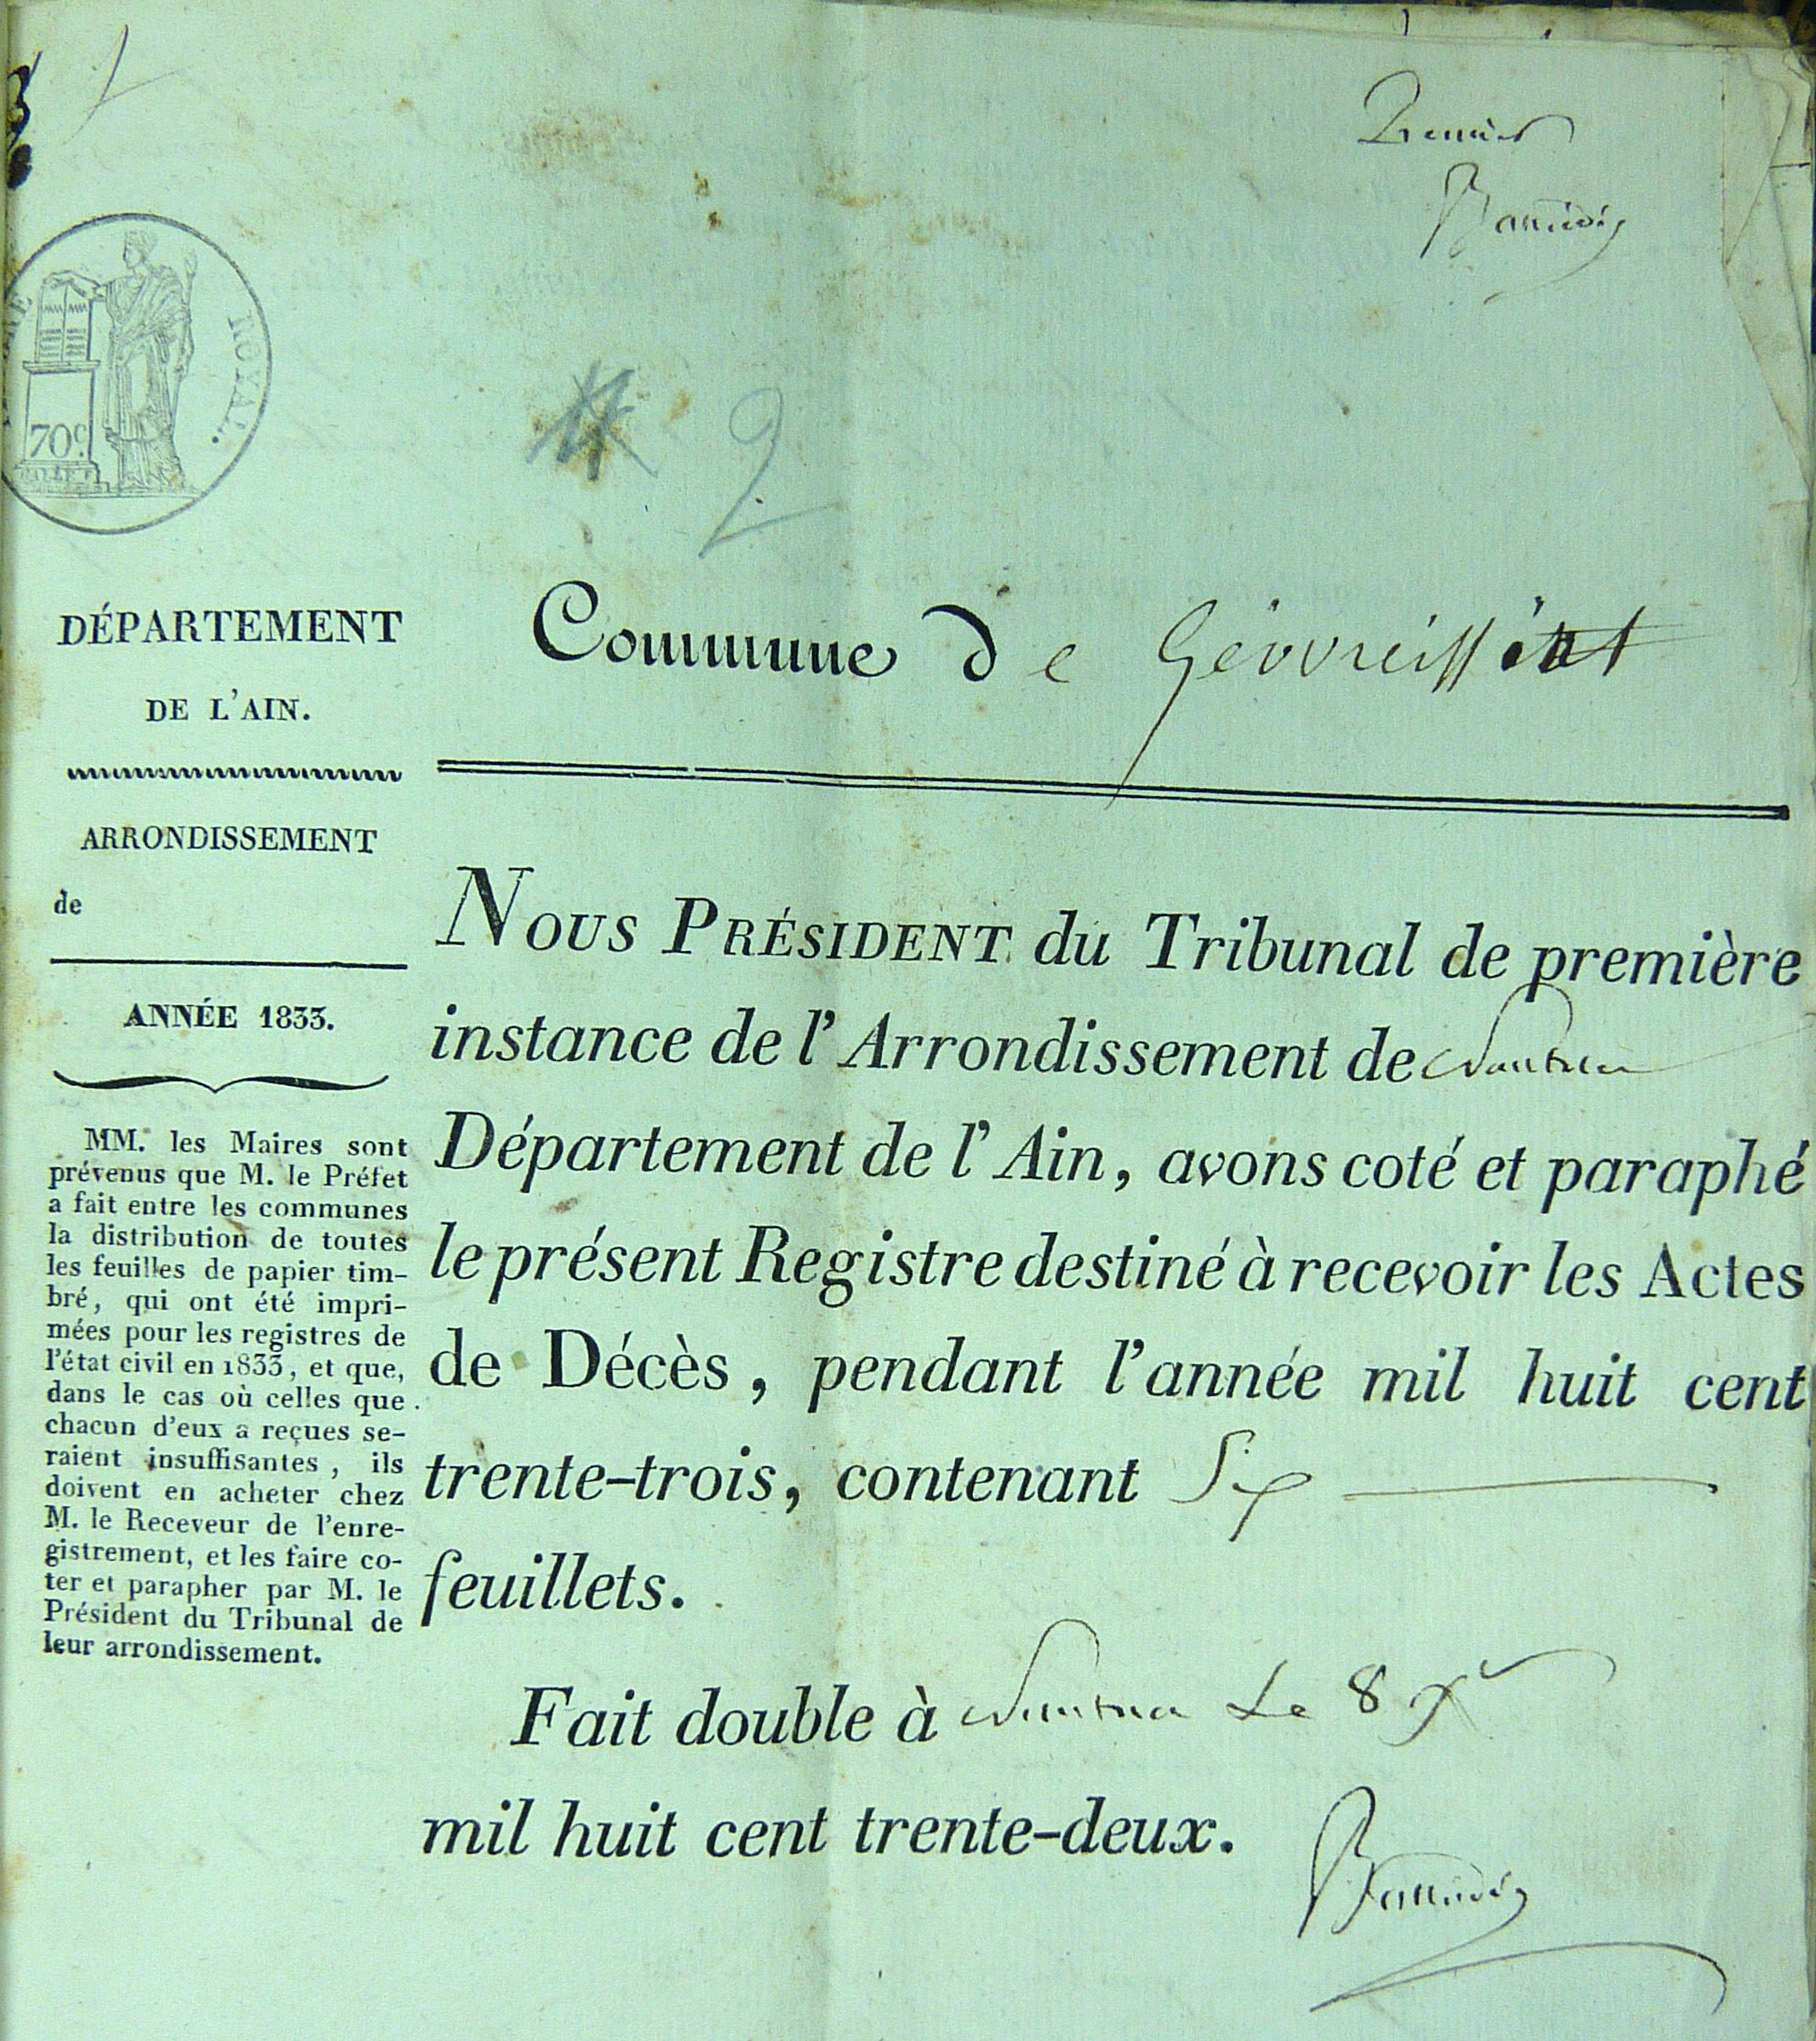 Premier
ROYAL.
70c.
2
DÉPARTEMENT
DE L'AIN.
ARRONDISSEMENT
de
ANNÉE 1833.
MM. les Maires sont
prévenus que M. le Préfet
a fait entre les communes
la distribution de toutes
les feuilles de papier tim-
bré, qui ont été impri-
mées pour les registres de
l'état civil en 1833, et que,
dans le cas où celles que
chacun d'eux a reçues se-
raient insuffisantes, ils
doivent en acheter chez
M. le Receveur de l'enre-
gistrement, et les faire co-
ter et parapher par M. le
Président du Tribunal de
leur arrondissement.
Commune de
NOUS PRÉSIDENT du Tribunal de première
instance de l'Arrondissement de Nantua
Département de l'Ain, avons coté et paraphé
le présent Registre destiné à recevoir les Actes
de Décès, pendant l'année mil huit cent
trente-trois, contenant Six
feuillets.
Fait double à Nantua Le 8 Xr
mil huit cent trente-deux.